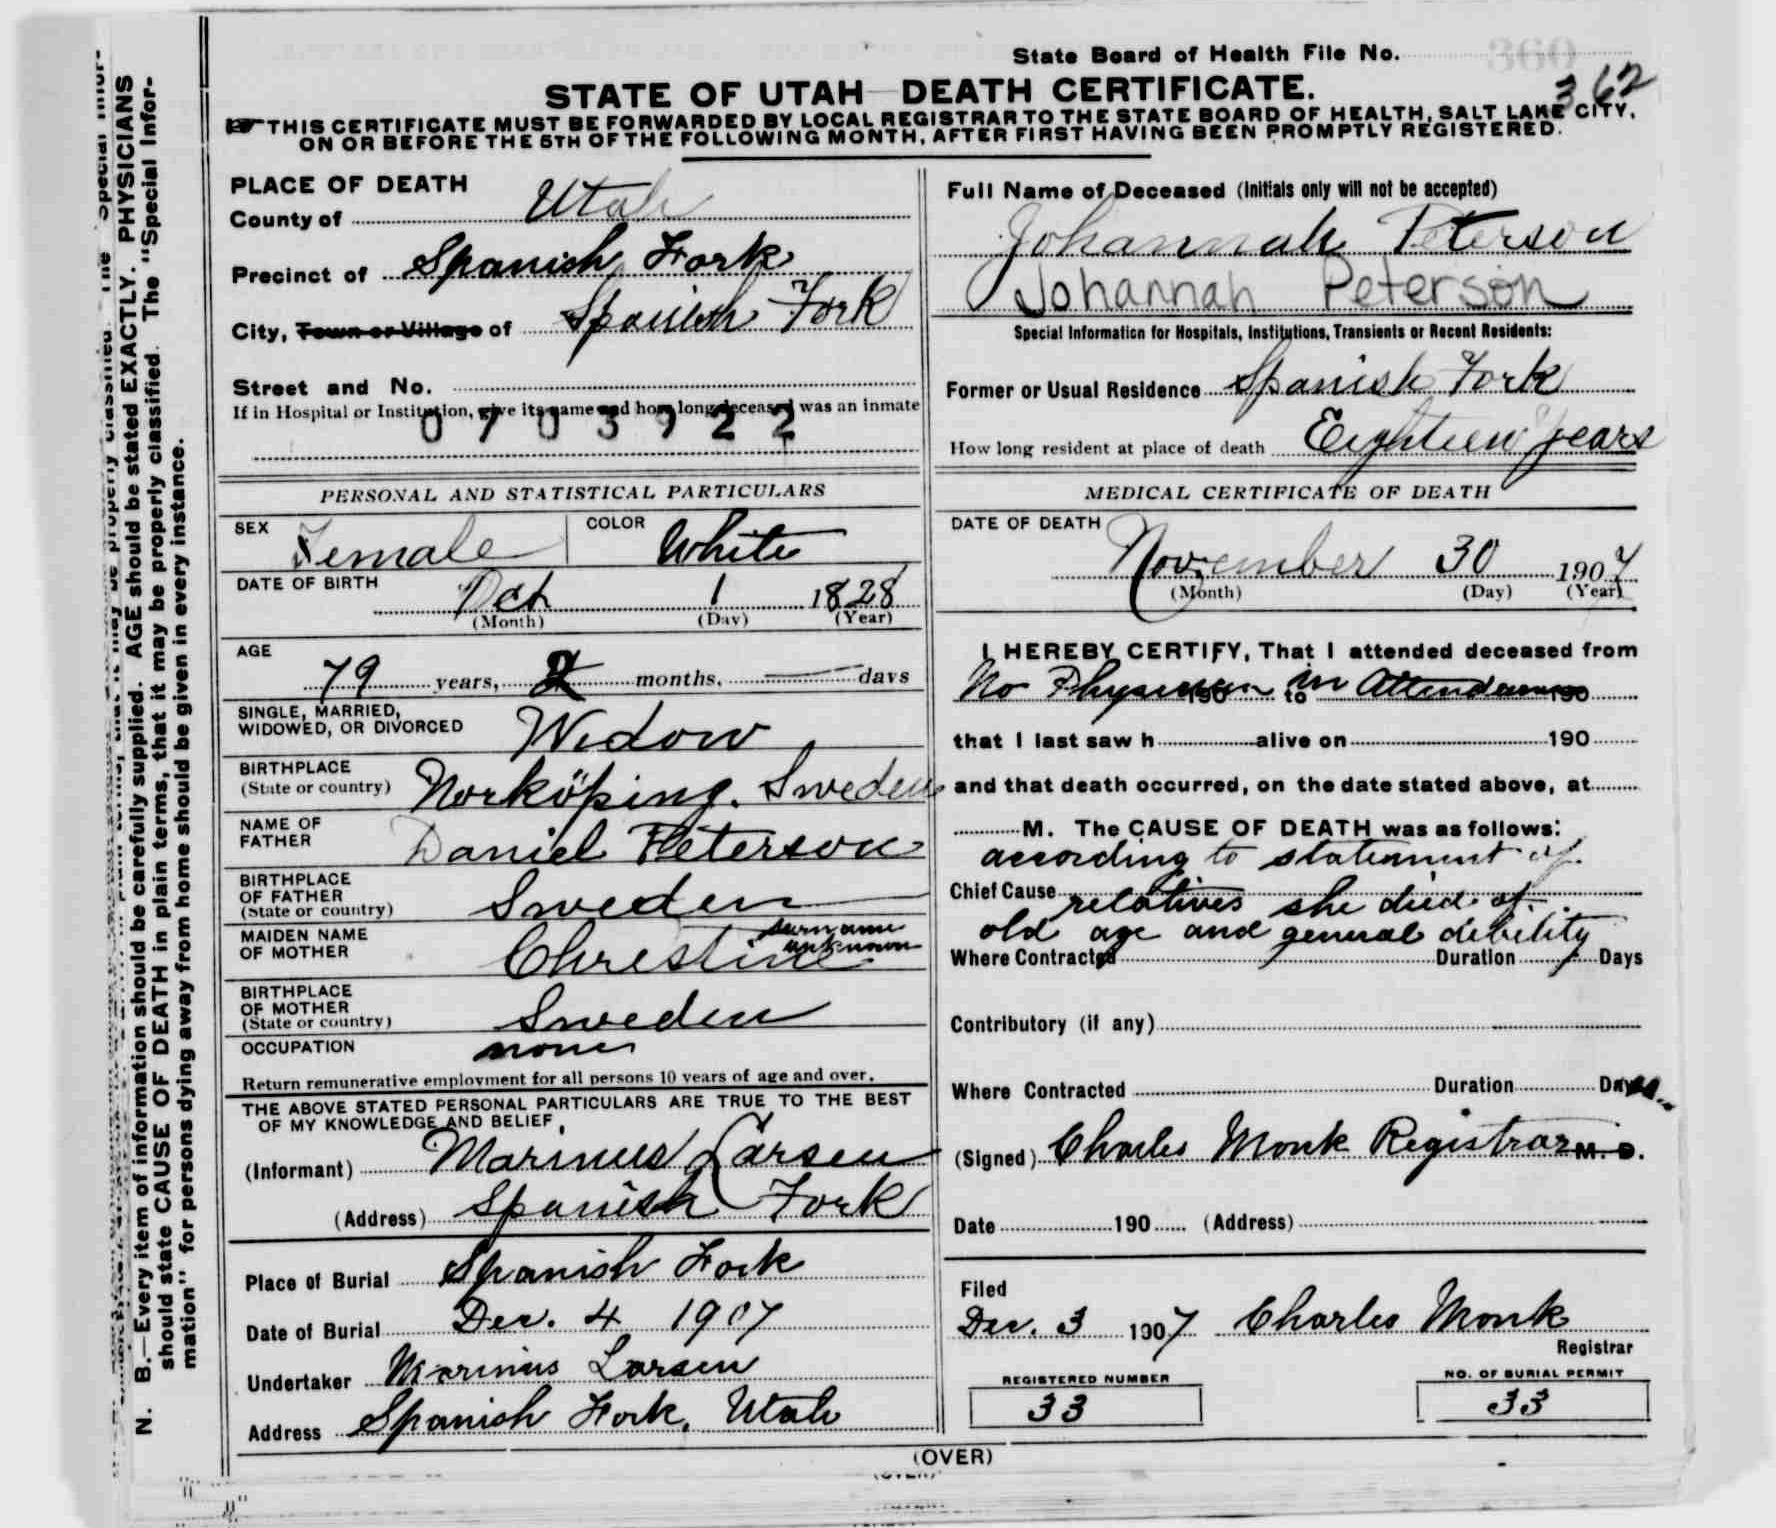 State Board of Health File No.
360
362
STATE OF UTAH DEATH CERTIFICATE.
THIS CERTIFICATE MUST BE FORWARDED BY LOCAL REGISTRAR TO THE STATE BOARD OF HEALTH, SALT LAKE CITY,
ON OR BEFORE THE 5TH OF THE FOLLOWING MONTH, AFTER FIRST HAVING BEEN PROMPTLY REGISTERED.
PLACE OF DEATH
County of Utah
Precinct of Spanish Fork
City, Town or Village of Spanish Fork
Street and No.
If in Hospital or Institution, give its name and how long deceased was an inmate
0703922
Full Name of Deceased (Initials only will not be accepted)
Johannah Peterson
Johannah Peterson
Special Information for Hospitals, Institutions, Transients or Recent Residents:
Former or Usual Residence Spanish Fork
How long resident at place of death Eighteen years
PERSONAL AND STATISTICAL PARTICULARS
SEX Female COLOR White
DATE OF BIRTH
Oct 1 1828
(Month) (Day) (Year)
AGE
79 years, 2 months, — days
SINGLE, MARRIED,
WIDOWED, OR DIVORCED Widow
BIRTHPLACE
(State or country) Norköping. Sweden
NAME OF
FATHER Daniel Peterson
BIRTHPLACE
OF FATHER
(State or country) Sweden
MAIDEN NAME
OF MOTHER Chrestine surname unknown
BIRTHPLACE
OF MOTHER
(State or country) Sweden
OCCUPATION none
Return remunerative employment for all persons 10 years of age and over.
THE ABOVE STATED PERSONAL PARTICULARS ARE TRUE TO THE BEST
OF MY KNOWLEDGE AND BELIEF,
(Informant) Marinus Larsen
(Address) Spanish Fork
Place of Burial Spanish Fork
Date of Burial Dec. 4 1907
Undertaker Marinus Larsen
Address Spanish Fork, Utah
MEDICAL CERTIFICATE OF DEATH
DATE OF DEATH
November 30 1907
(Month) (Day) (Year)
I HEREBY CERTIFY, That I attended deceased from
No Physician 190 to in Attendance 190
that I last saw h alive on 190
and that death occurred, on the date stated above, at
M. The CAUSE OF DEATH was as follows:
according to statement of
Chief Cause relatives she died of
old age and general debility
Where Contracted Duration Days
Contributory (if any)
Where Contracted Duration Days
(Signed) Charles Monk Registrar M. D.
Date 190 (Address)
Filed
Dec. 3 1907 Charles Monk
Registrar
REGISTERED NUMBER
33
NO. OF BURIAL PERMIT
33
(OVER)
N. B.—Every item of information should be carefully supplied. AGE should be stated EXACTLY. PHYSICIANS
should state CAUSE OF DEATH in plain terms, that it may be properly classified. The "Special Infor-
mation" for persons dying away from home should be given in every instance.